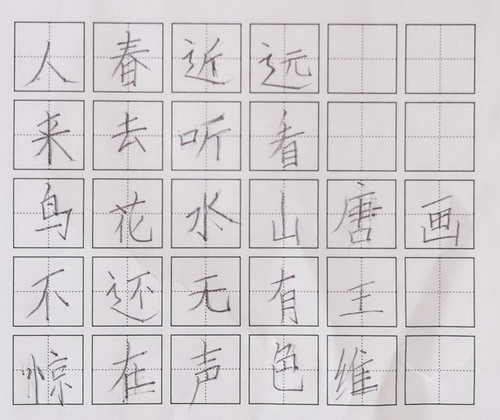 人春近远
来去听看
鸟花水山唐画
不还无有王
惊在声色维